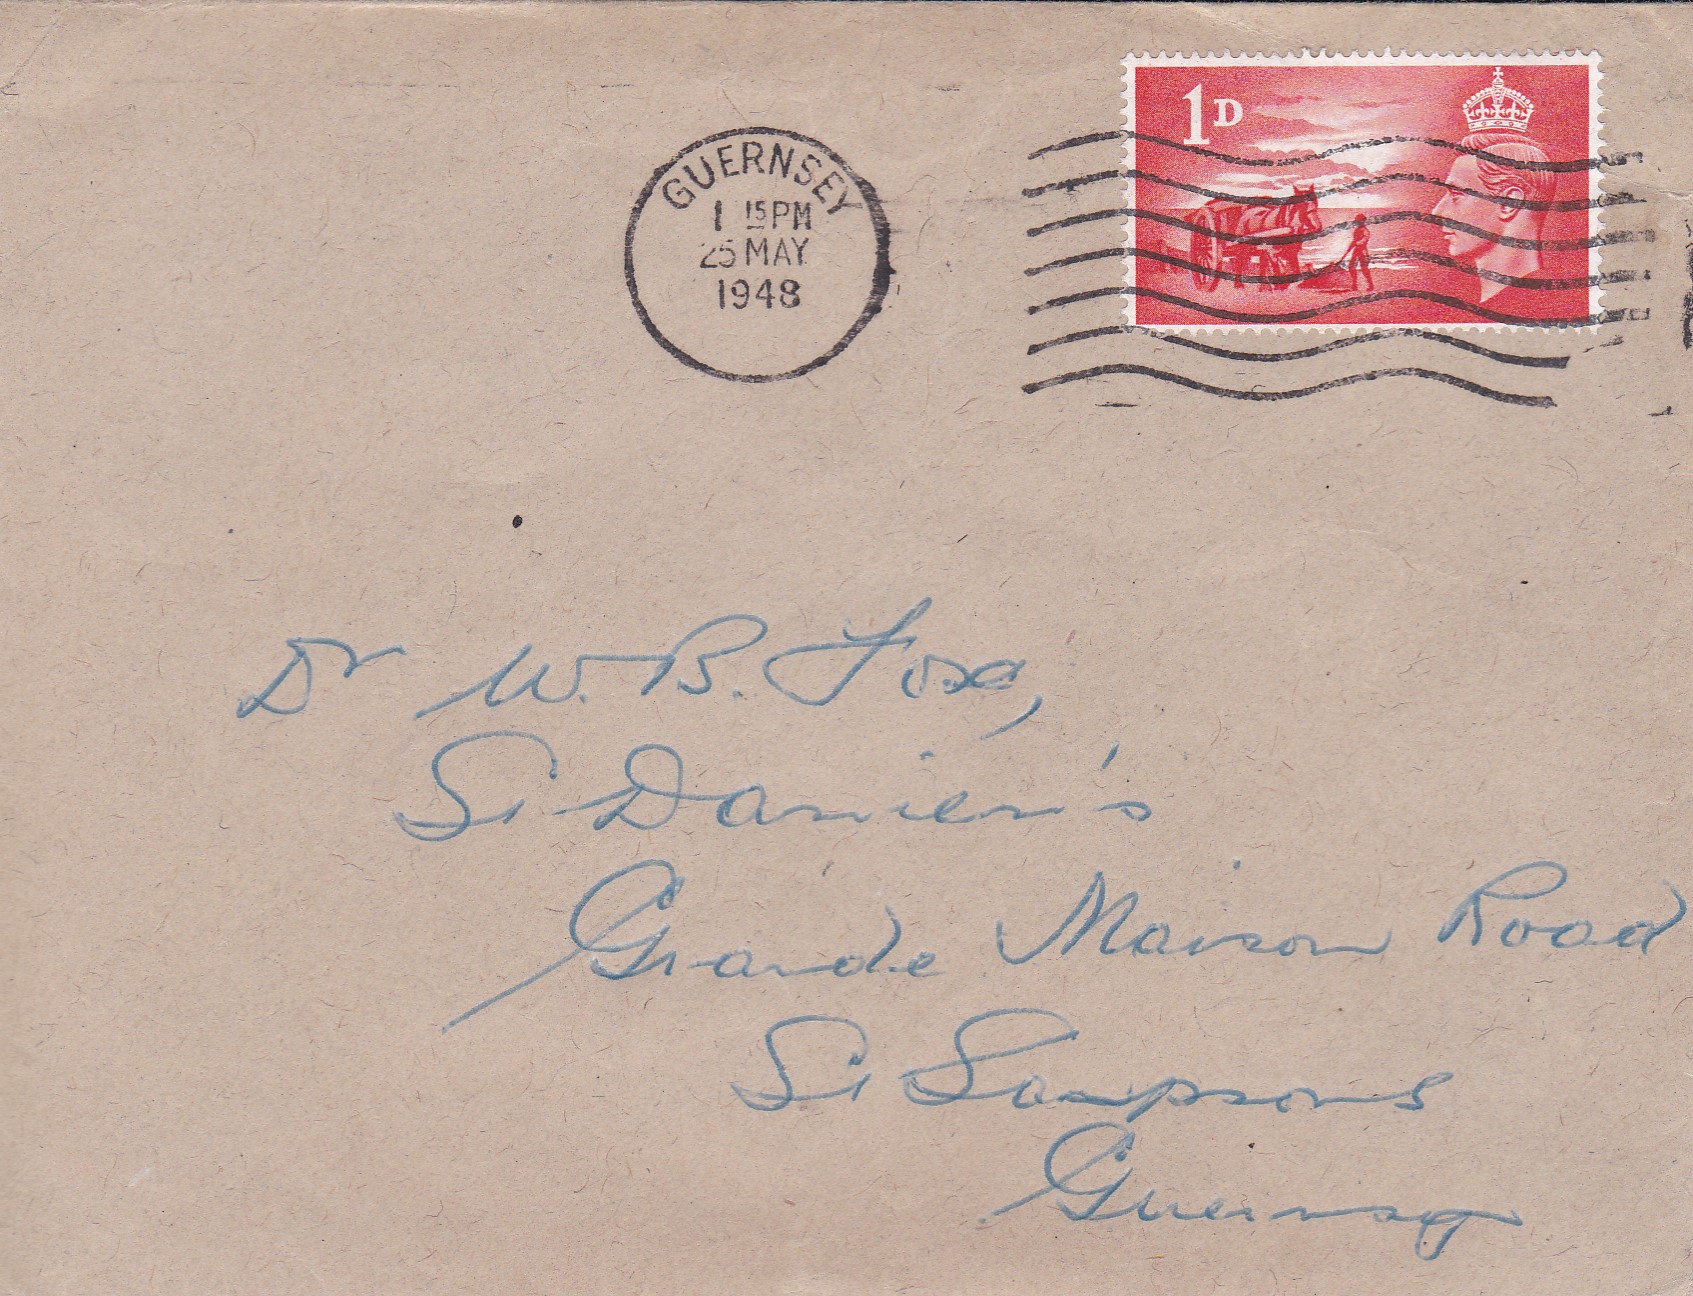 1D
GUERNSEY
1 15 PM
25 MAY
1948
Dr W. B. Fox,
St Damien's
Grande Maison Road
St Sampsons
Guernsey